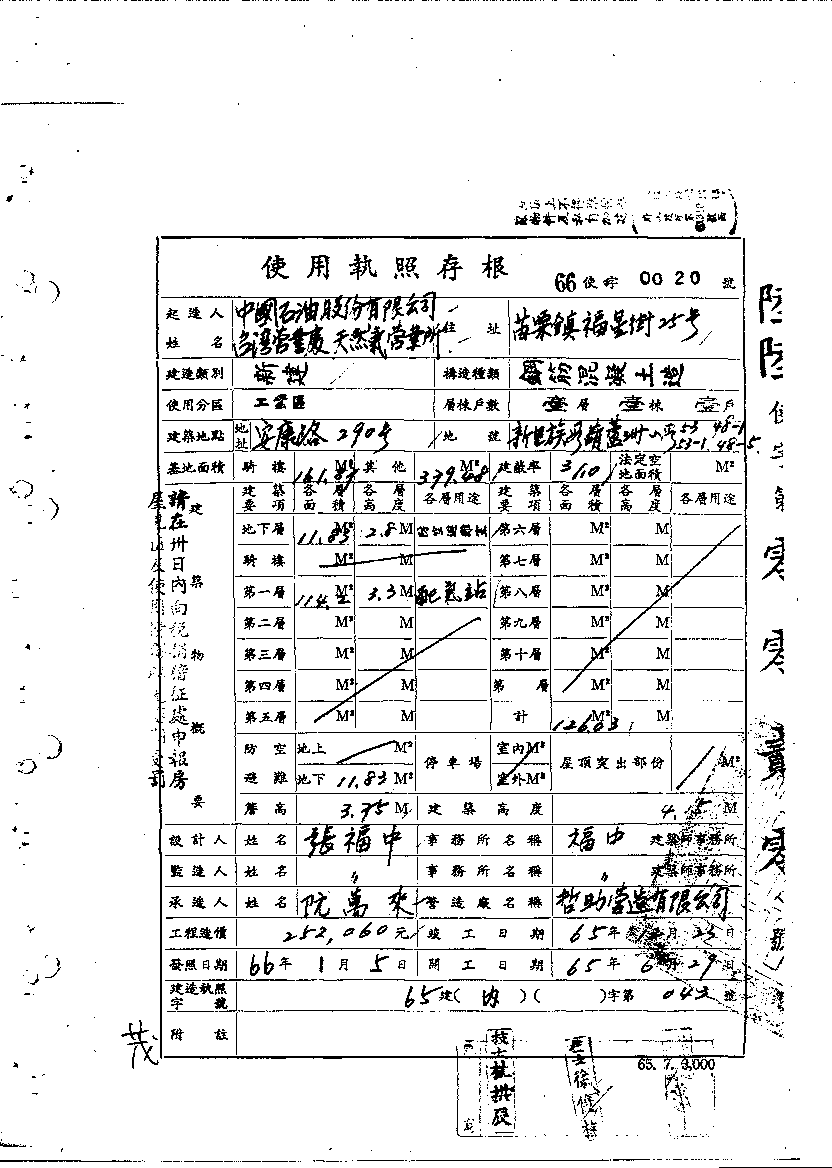 使用執照存根
66使字 0020 號
起造人姓名 中國石油股份有限公司
台灣營業處天然氣營業所
住址 苗栗鎮福星街25号
建造類別 新建 構造種類 鋼筋混凝土造
使用分區 工業區 層棟戶數 壹層 壹棟 壹戶
建築地點 地址 安康路290号 地號 53 48-1
53-1 48-5
基地面積 騎樓 161.83 M² 其他 339.48 M² 建蔽率 31.0 法定空地面積 M²
建築要項 各層面積 各層高度 各層用途 建築要項 各層面積 各層高度 各層用途
地下層 11.83 M² 2.8 M 第六層 M² M
騎樓 M² M 第七層 M² M
第一層 114.2 M² 3.3 M 配氣站 第八層 M² M
第二層 M² M 第九層 M² M
第三層 M² M 第十層 M² M
第四層 M² M 第 層 M² M
第五層 M² M 計 126.03 M² M
建築物概要
防空避難 地上 M² 停車場 室內 M² 屋頂突出部份 M²
地下 11.83 M² 室外 M²
簷高 3.75 M 建築高度 4.15 M
設計人 姓名 張福中 事務所名稱 福中 建築師事務所
監造人 姓名 〃 事務所名稱 〃 建築師事務所
承造人 姓名 阮萬來 營造廠名稱 哲助營造有限公司
工程造價 252,060元 竣工日期 65年 月 23日
發照日期 66年1月5日 開工日期 65年6月29日
建造執照字號 65建(內)( )字第 043 號
附註
65. 7. 3,000
請在卅日內向稅捐稽征處申報房
陸陸使字第零零貳零號
茂